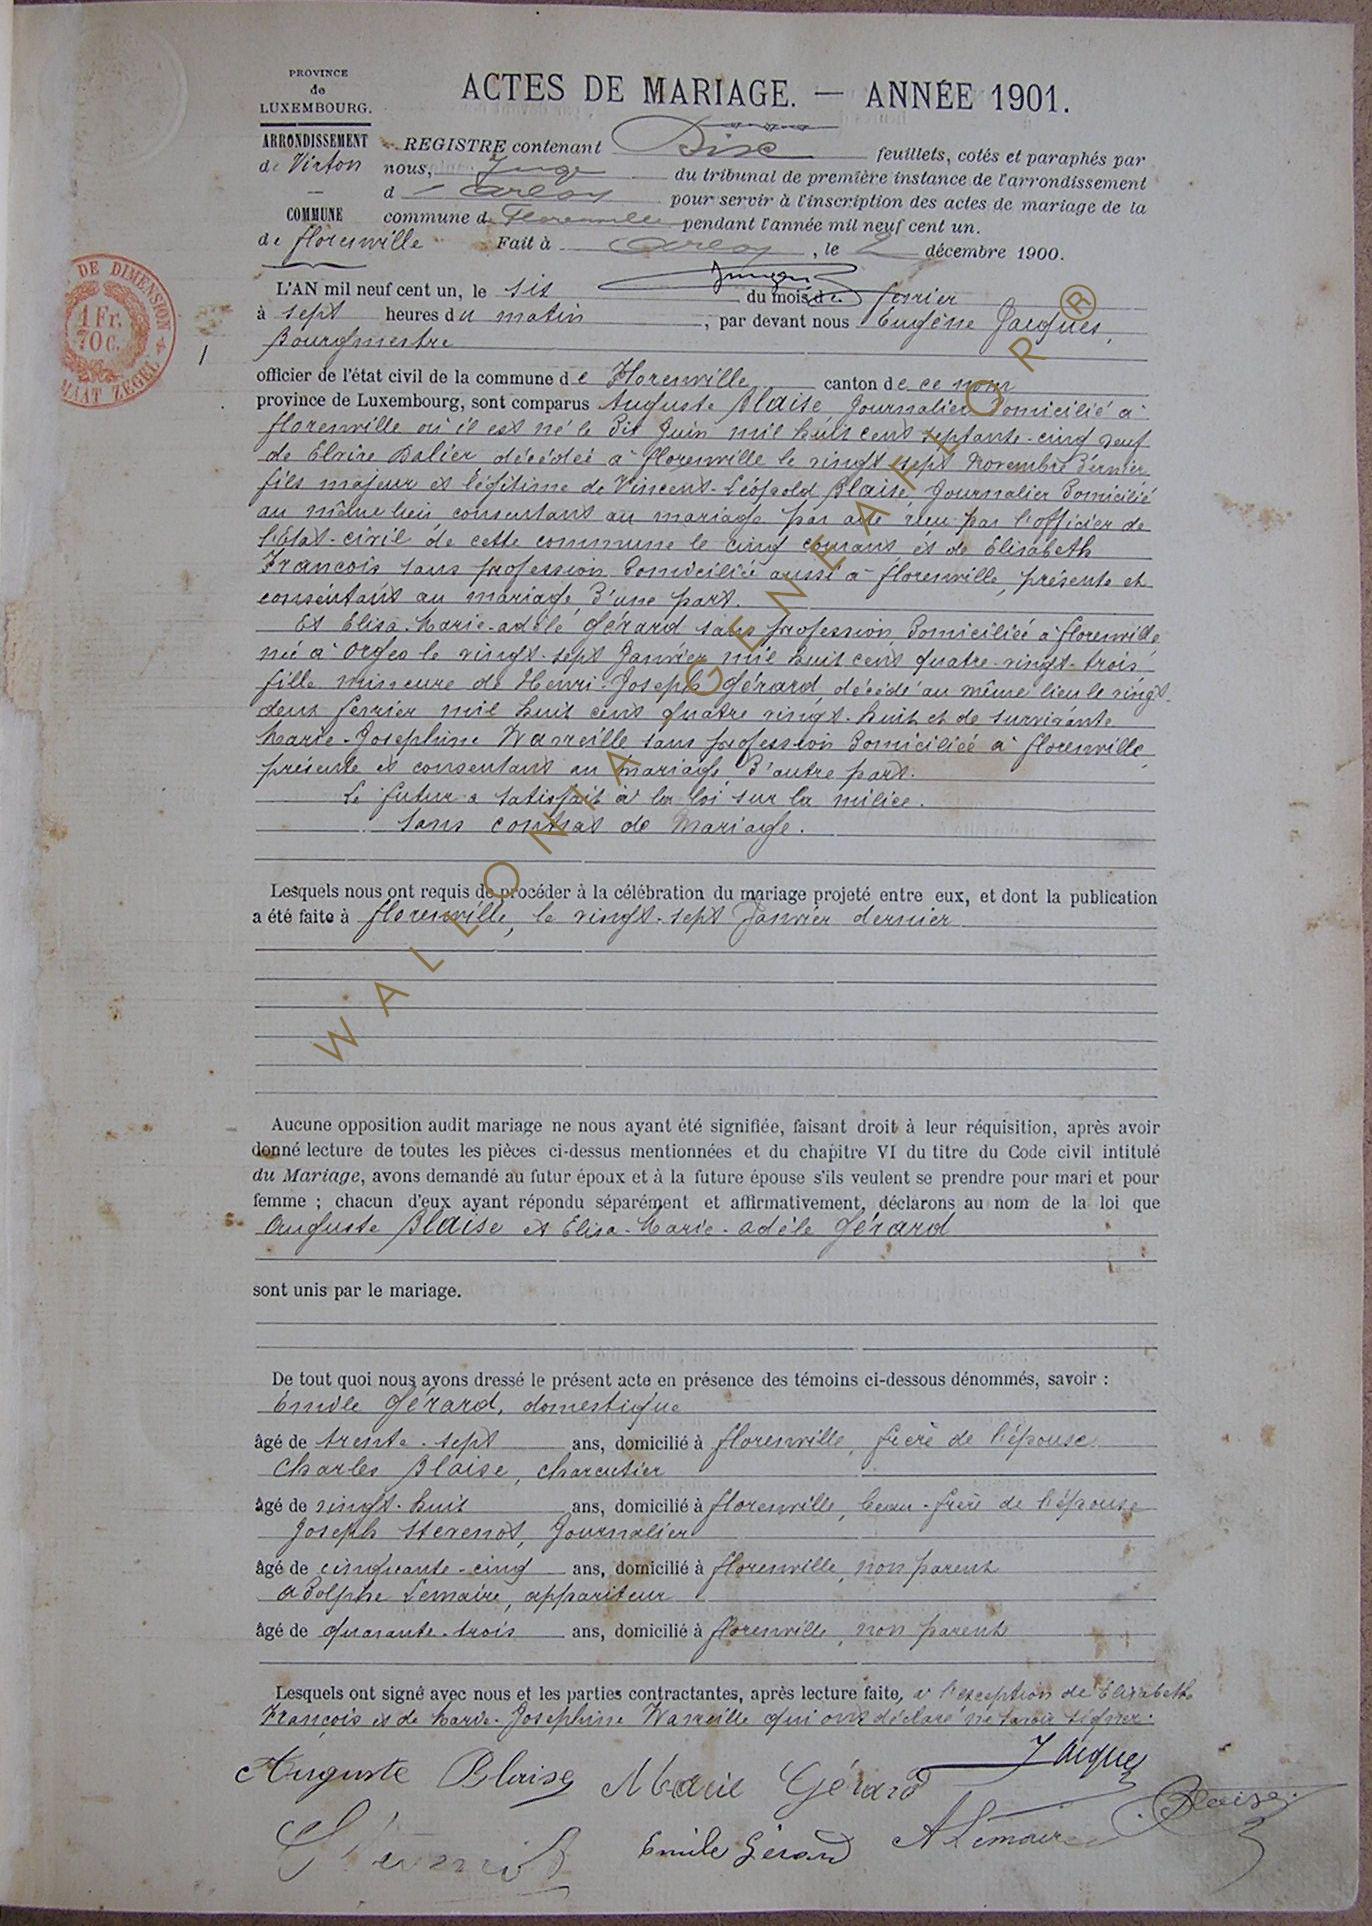 PROVINCE
de
LUXEMBOURG.
ACTES DE MARIAGE. — ANNÉE 1901.
ARRONDISSEMENT
de Virton
COMMUNE
de florenville
REGISTRE contenant Dix feuillets, cotés et paraphés par
nous, Juge du tribunal de première instance de l'arrondissement
d'Arlon pour servir à l'inscription des actes de mariage de la
commune de Florenville pendant l'année mil neuf cent un.
Fait à Arlon, le 2 décembre 1900.
DE DIMENSION
1 Fr.
70 C.
MAAT ZEGEL
1
L'AN mil neuf cent un, le six du mois de fevrier
à sept heures du matin, par devant nous Eugène Jacques,
Bourgmestre
officier de l'état civil de la commune de Florenville canton de ce nom
province de Luxembourg, sont comparus Auguste Blaise Journalier Domicilié à
florenville où il est né le Dix Juin mil huit cent septante-cinq veuf
de Elvire Dalier décédée à florenville le vingt sept Novembre Dernier
fils majeur et légitime de Vincent-Léopold Blaise Journalier Domicilié
au même lieu consentant au mariage par acte reçu par l'officier de
l'état-civil de cette commune le cinq courant et de Elisabeth
François sans profession Domiciliée aussi à florenville, présente et
consentant au mariage D'une part.
Et Elisa-Marie-adèle Gérard sans profession Domiciliée à florenville
née à Orgeo le vingt-sept Janvier mil huit cent quatre-vingt-trois
fille mineure de Henri-Joseph Gérard, décédé au même lieu le vingt-
deux fevrier mil huit cent quatre vingt-huit et de survivante
Marie-Josephine Warville sans profession Domiciliée à florenville,
présente et consentant au mariage D'autre part.
Le futur a satisfait à la loi sur la milice.
Sans contrat de Mariage.
Lesquels nous ont requis de procéder à la célébration du mariage projeté entre eux, et dont la publication
a été faite à florenville, le vingt-sept Janvier dernier
Aucune opposition audit mariage ne nous ayant été signifiée, faisant droit à leur réquisition, après avoir
donné lecture de toutes les pièces ci-dessus mentionnées et du chapitre VI du titre du Code civil intitulé
du Mariage, avons demandé au futur époux et à la future épouse s'ils veulent se prendre pour mari et pour
femme ; chacun d'eux ayant répondu séparément et affirmativement, déclarons au nom de la loi que
Auguste Blaise et Elisa-Marie-adèle Gérard
sont unis par le mariage.
De tout quoi nous avons dressé le présent acte en présence des témoins ci-dessous dénommés, savoir :
Emile Gérard, domestique
âgé de trente-sept ans, domicilié à florenville, frère de l'épouse
Charles Blaise, charcutier
âgé de vingt-huit ans, domicilié à florenville, beau-frère de l'épouse
Joseph Stevenot, Journalier
âgé de cinquante-cinq ans, domicilié à florenville, non parent
Adolphe Lemaire, appariteur
âgé de quarante-trois ans, domicilié à florenville, non parent
Lesquels ont signé avec nous et les parties contractantes, après lecture faite, à l'exception de Elisabeth
François et de Marie-Josephine Warville qui ont déclaré ne savoir signer.
Auguste Blaise Marie Gérard Jacques
Stévenot Emile Gérard A Lemaire Blaise
WALLONIA GENEAFLOR ®